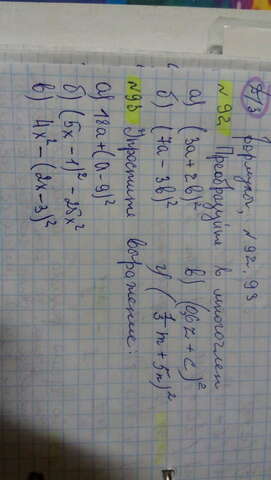 Д/З формулы, №92, 93
№92 Преобразуйте в многочлен
а) (3а+2в)² в) (0,6z + c)²
б) (7а - 3в)² г) (1/3 m + 5n)²
№93 Упростите выражение:
а) 18а+(а-9)²
б) (5х -1)² - 25х²
в) 4х² - (2х-3)²